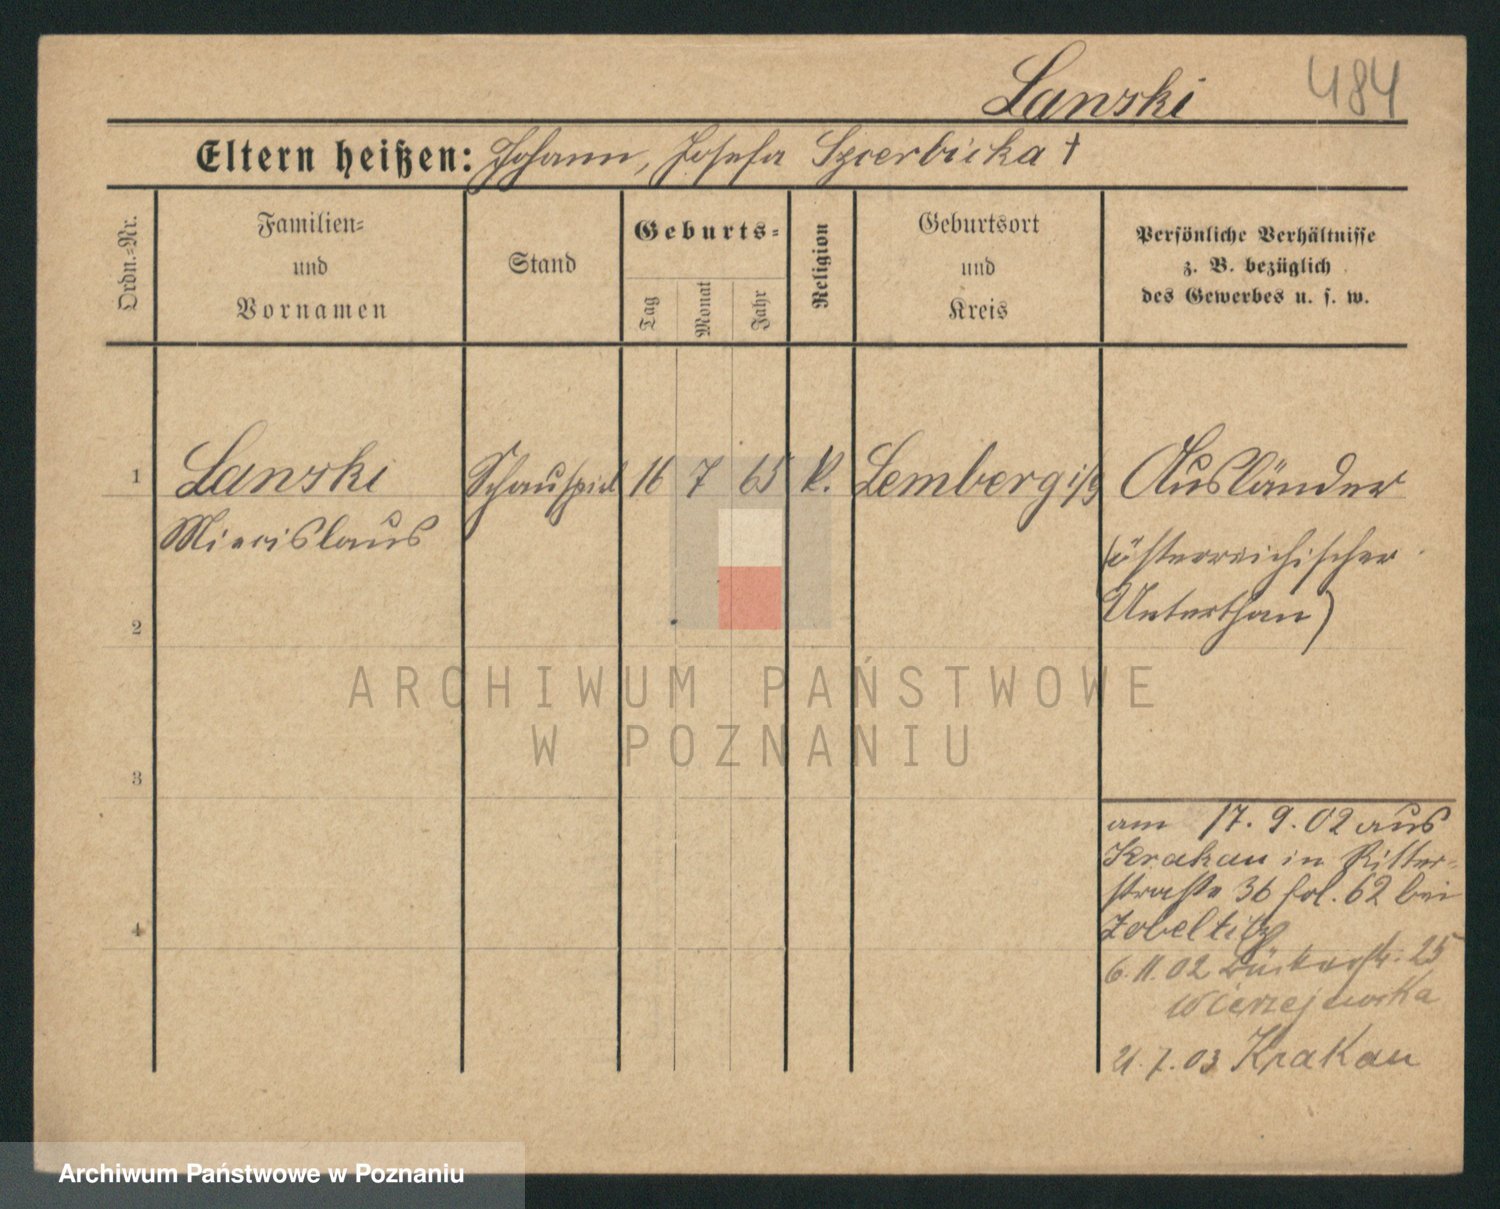 Lanski 484
Eltern heißen: Johann, Josefa Szcerbicka †
Ordn.=Nr.
Familien=
und
Vornamen
Stand
Geburts=
Tag
Monat
Jahr
Religion
Geburtsort
und
Kreis
Persönliche Verhältnisse
z. B. bezüglich
des Gewerbes u. s. w.
1 Lanski Schauspiel 16 7 65 K. Lemberg Ausländer
Miecislaus
(österreichischer
Unterthan)
2
3
4
am 17. 9. 02 aus
Krakau in Ritter=
straße 36 fol. 62 bei
Zobeltitz
6. 11. 02 25
Wierzejewska
21. 7. 03 Krakau
ARCHIWUM PAŃSTWOWE
W POZNANIU
Archiwum Państwowe w Poznaniu